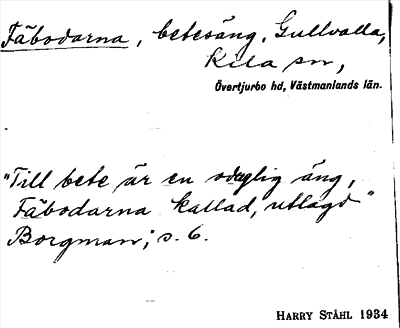 Fäbodarna, betesäng, Gullvalla,
Kila sn,
Övertjurbo hd, Västmanlands län.
"Till bete är en oduglig äng,
Fäbodarna kallad, utlagd"
Borgman; s. 6.
HARRY STÅHL 1934